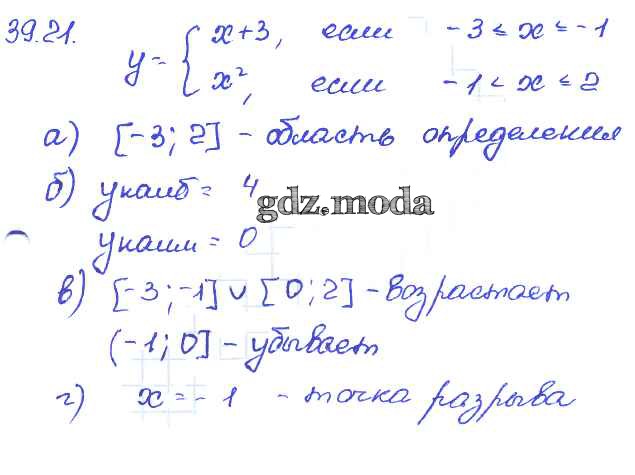 39.21.
y = { x+3, если -3 ≤ x ≤ -1
x², если -1 < x ≤ 2
а) [-3; 2] - область определения
б) yнаиб = 4
gdz.moda
yнаим = 0
в) [-3; -1] ∪ [0; 2] - возрастает
(-1; 0] - убывает
г) x = -1 - точка разрыва